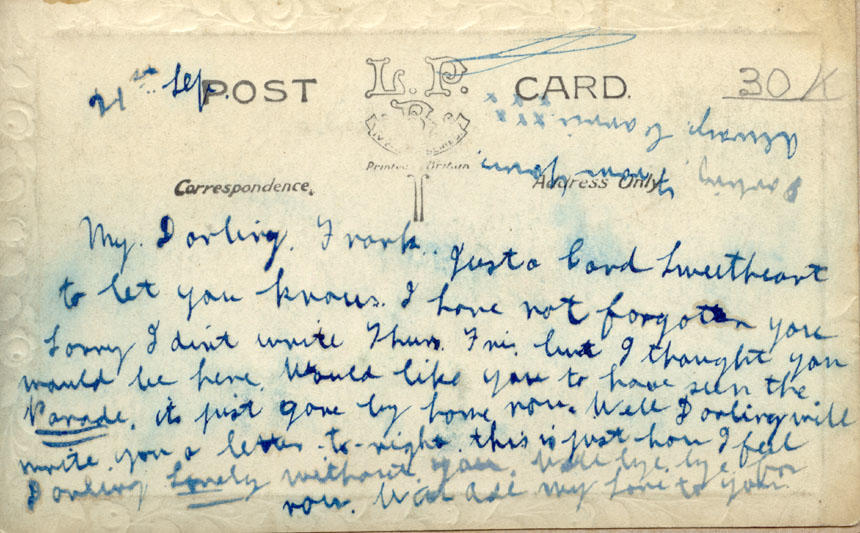 21st Sep.
POST CARD.
L.P.
30/K
Printed Britain
Correspondence.
Address Only
My. Darling. Frank.. Just a Card Sweetheart
to let you know. I have not forgotten you
Sorry I didnt write Thurs. Fri. but I thought you
would be here. Would like you to have seen the
Parade, its just gone by home now. Well Darling will
write you a letter to-night. this is just how I feel
Darling Lonely without you. Well bye. bye for
now. With All my Love to you.
from your
Always
x x x x x x